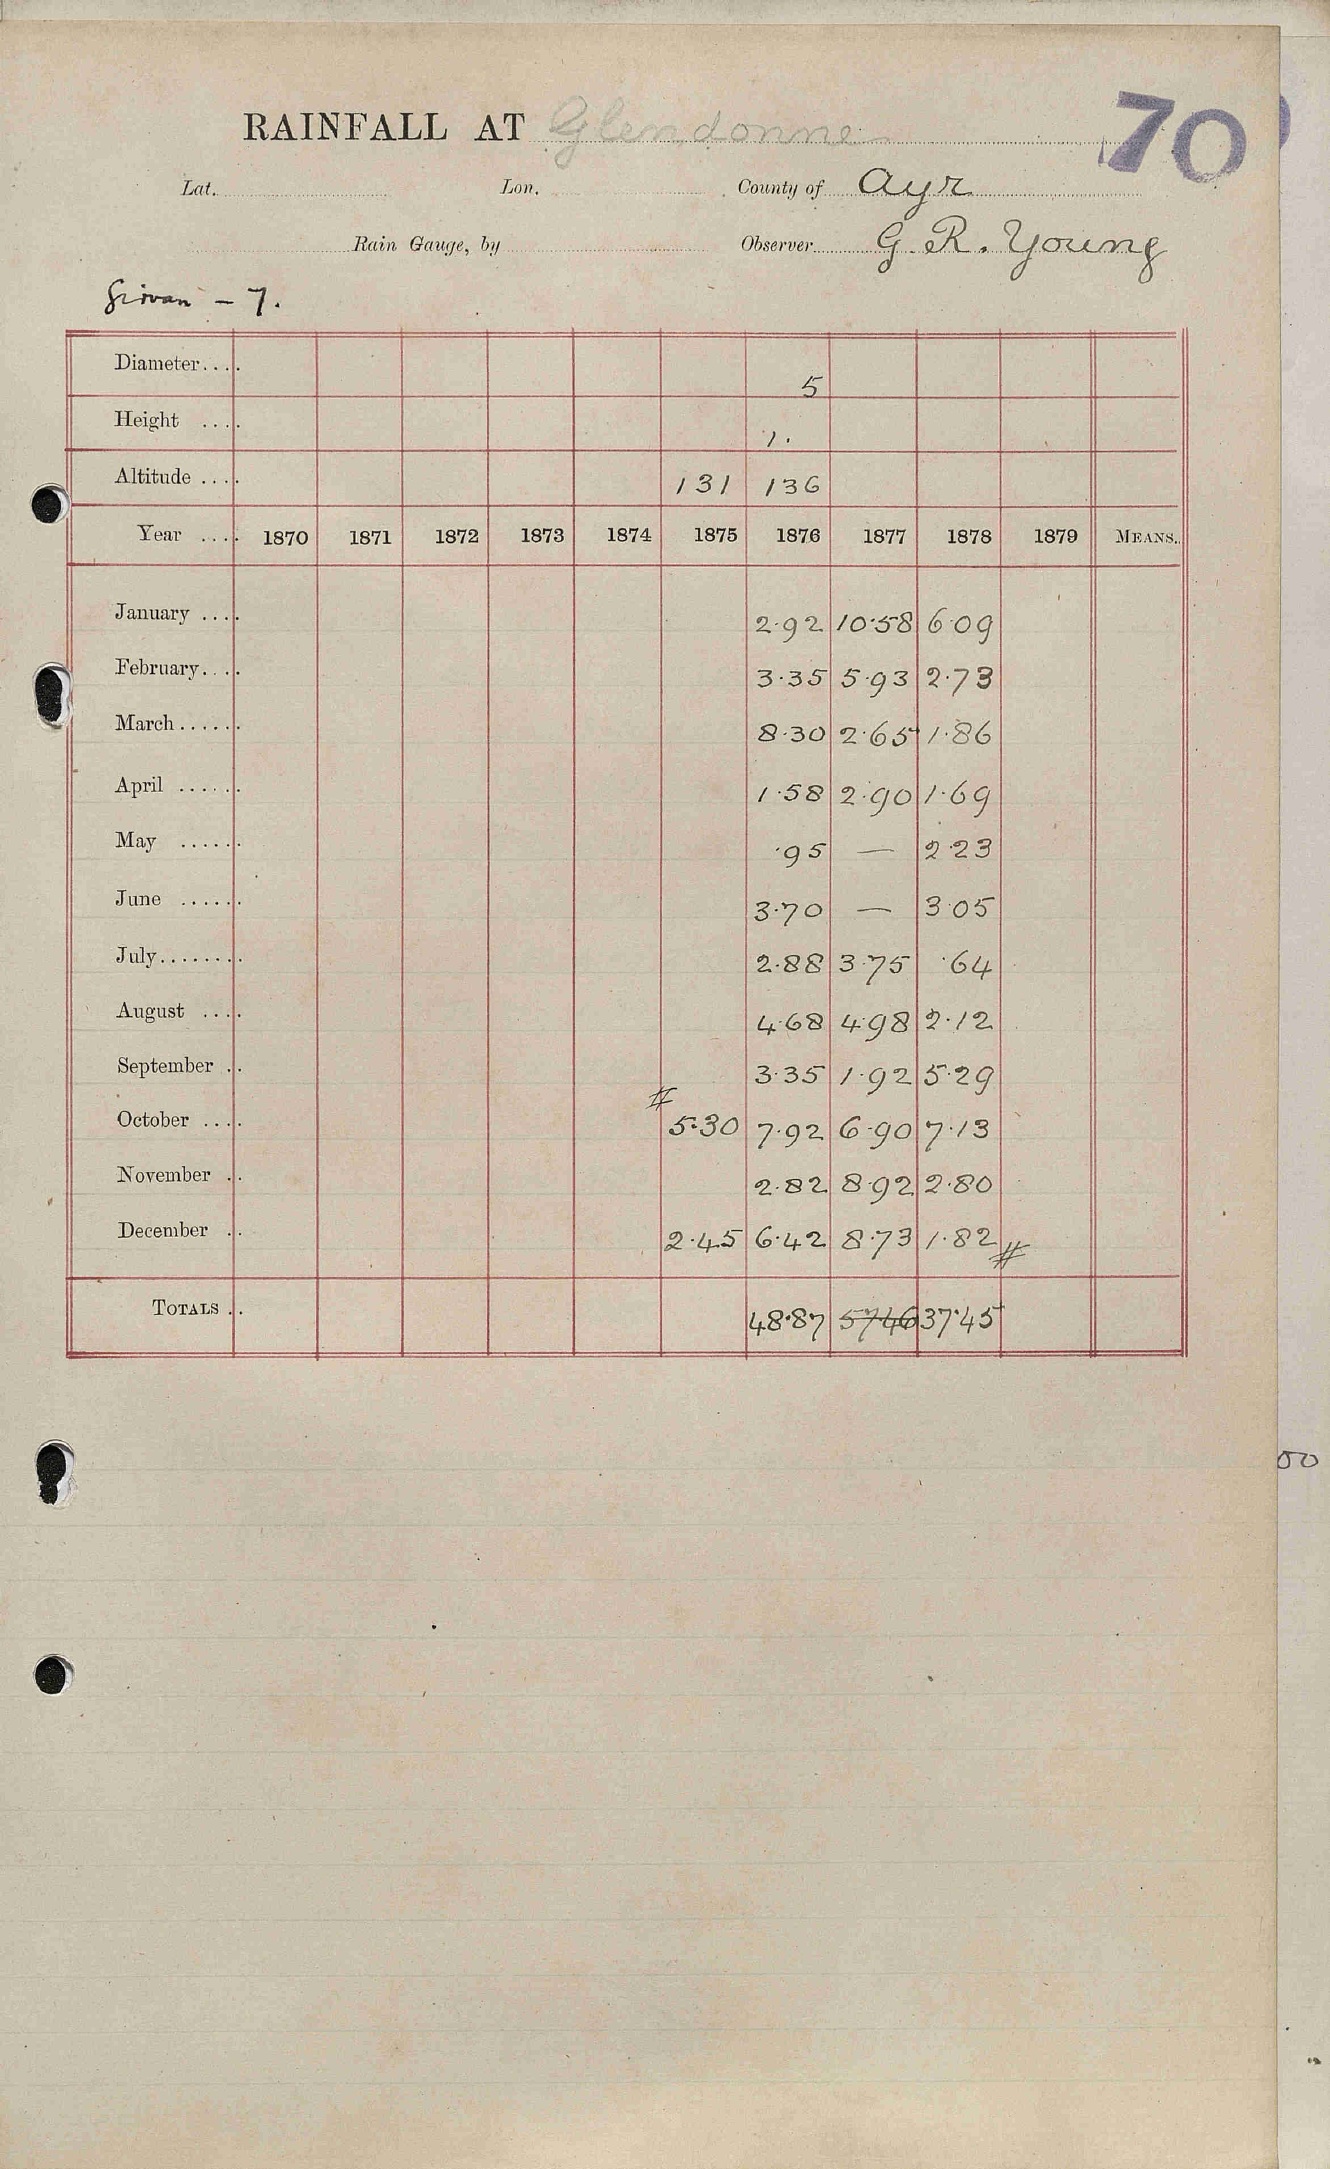 70
RAINFALL AT Glendonne
Lat. Lon. County of Ayr
Rain Gauge, by Observer G. R. Young
Girvan - 7.
Diameter.... 5
Height .... 1.
Altitude .... 131 136
Year .... 1870 1871 1872 1873 1874 1875 1876 1877 1878 1879 MEANS..
January .... 2.92 10.58 6.09
February.... 3.35 5.93 2.73
March...... 8.30 2.65 1.86
April ...... 1.58 2.90 1.69
May ...... .95 — 2.23
June ...... 3.70 — 3.05
July........ 2.88 3.75 .64
August .... 4.68 4.98 2.12
September .. 3.35 1.92 5.29
October .... # 5.30 7.92 6.90 7.13
November .. 2.82 8.92 2.80
December .. 2.45 6.42 8.73 1.82 #
TOTALS .. 48.87 5746 37.45
00